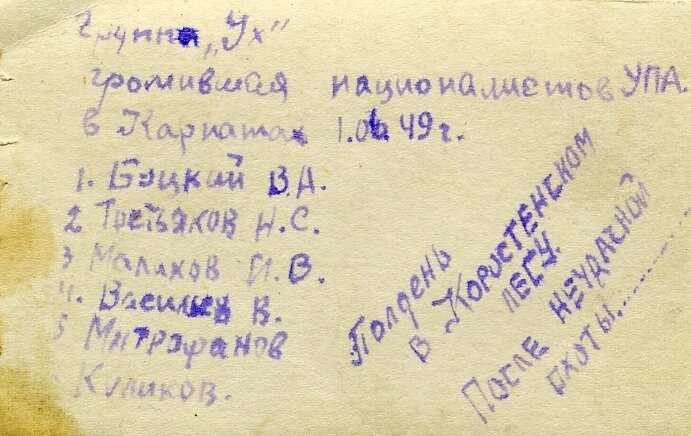 Группа „Ух"
громившая националистов УПА.
в Карпатах 49 г.
1. Бацкий В.А.
2 Третьяков Н.С.
3 Малихов И.В.
4. Васильев В.
5 Митрофанов
Куликов.
Полдень
в Користенском
лесу.
После неудачной
охоты.......